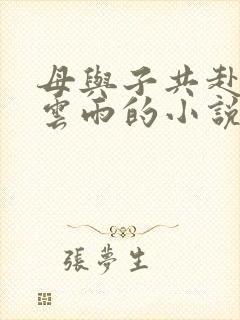 母與子共赴
雲雨的小說
張夢生